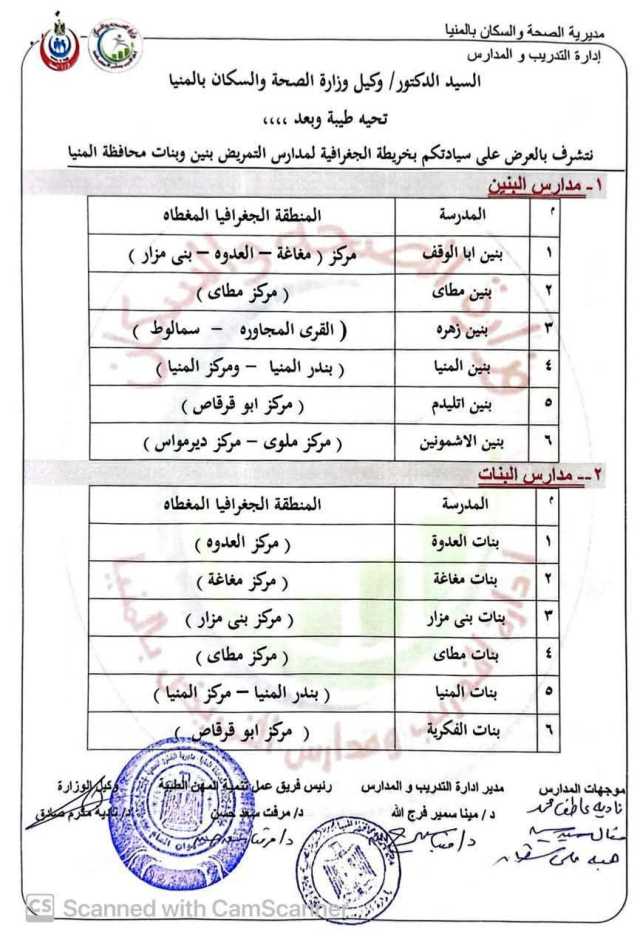 مديرية الصحة والسكان بالمنيا
إدارة التدريب و المدارس
السيد الدكتور/ وكيل وزارة الصحة والسكان بالمنيا
تحيه طيبة وبعد ,,,,
نتشرف بالعرض على سيادتكم بخريطة الجغرافية لمدارس التمريض بنين وبنات محافظة المنيا
١- مدارس البنين
م المدرسة المنطقة الجغرافيا المغطاه
١ بنين ابا الوقف مركز ( مغاغة – العدوه – بنى مزار )
٢ بنين مطاى ( مركز مطاى )
٣ بنين زهره ( القرى المجاوره – سمالوط )
٤ بنين المنيا ( بندر المنيا – ومركز المنيا )
٥ بنين اتليدم ( مركز ابو قرقاص )
٦ بنين الاشمونين ( مركز ملوى – مركز ديرمواس )
٢-- مدارس البنات
م المدرسة المنطقة الجغرافيا المغطاه
١ بنات العدوة ( مركز العدوه )
٢ بنات مغاغة ( مركز مغاغة )
٣ بنات بنى مزار ( مركز بنى مزار )
٤ بنات مطاى ( مركز مطاى )
٥ بنات المنيا ( بندر المنيا – مركز المنيا )
٦ بنات الفكرية ( مركز ابو قرقاص )
موجهات المدارس مدير ادارة التدريب و المدارس رئيس فريق عمل تنمية المهن الطبية وكيل الوزارة
نادية عاطف محمد
د / مينا سمير فرج الله د/ مرفت سعد حسن د/ نادية مكرم صادق
وزارة الصحة والسكان
إدارة التدريب ومدارس التمريض بالمنيا
CS Scanned with CamScanner